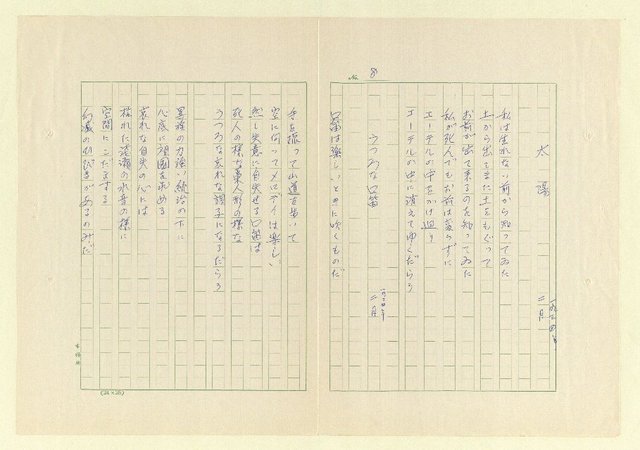 No. 8
太陽
一九二四年、
二月
私は生れない前から知ってゐた
土から出てまた土をもぐって
お前が出て来るのを知ってゐた
私が死んでもお前は変らずに
エーテルの中をかけ廻り
エーテルの中に消えてゆくだらう
うつろな口笛
一九二四年
二月
口笛は楽しいときに吹くものだ
手を振って山道を歩いて
空に向ってメロデイは楽しい
然し失意に自失せる口笛は
死人の様な藁人形の様な
うつろな哀れな調子になるだらう
異種の力強い統治の下に
心底に祖国を求める
哀れな自失の心には
枯れた の水音の様に
空間にこだまする
幻滅のひびきがあるのみだ
(24×25)